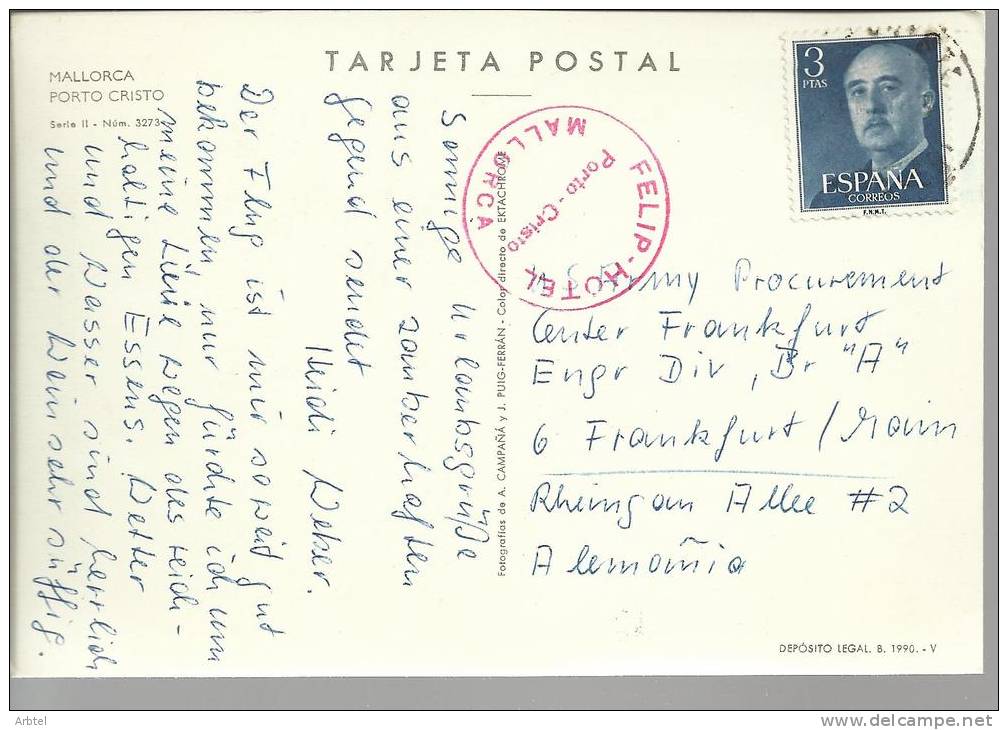 TARJETA POSTAL
MALLORCA
PORTO CRISTO
Serie II - Núm. 3273
3
PTAS
ESPAÑA
CORREOS
F.N.M.T.
FELIP-HOTEL
Porto-Cristo
MALLORCA
Sonnige Urlaubsgrüße
aus einer zauberhaften
Gegend sendet
Heidi Weber.
Der Flug ist mir soweit gut
bekommen, nur fürchte ich um
meine Linie wegen des reich-
haltigen Essens. Wetter
und Wasser sind herrlich
und der Wein sehr süffig.
Fotografías de A. CAMPAÑÁ y J. PUIG-FERRÁN - Color directo de EKTACHROME
U.S. Army Procurement
Center Frankfurt
Engr Div, Br "A"
6 Frankfurt/Main
Rheingau Allee #2
Alemañia
DEPÓSITO LEGAL. B. 1990. - V
Arbtel
delcampe.net